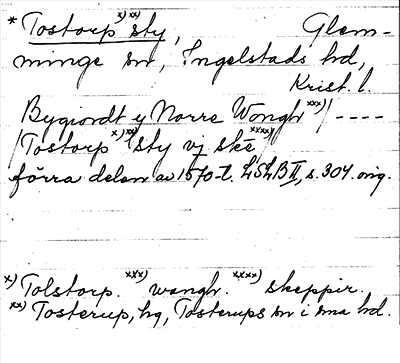 * Tostorp x) xx) sty, Glem-
minge sn, Ingelstads hd,
Krist. l.
Bygiordt y Norre Wongh xxx) / ----
/ Tostorp x) xx) sty vj skē xxxx) /
förra delen av 1570-t. LSLB II, s. 304. orig.
x) Tolstorp. xxx) wangh. xxxx) skeppir.
xx) Tosterup, hg, Tosterups sn i sma hd.